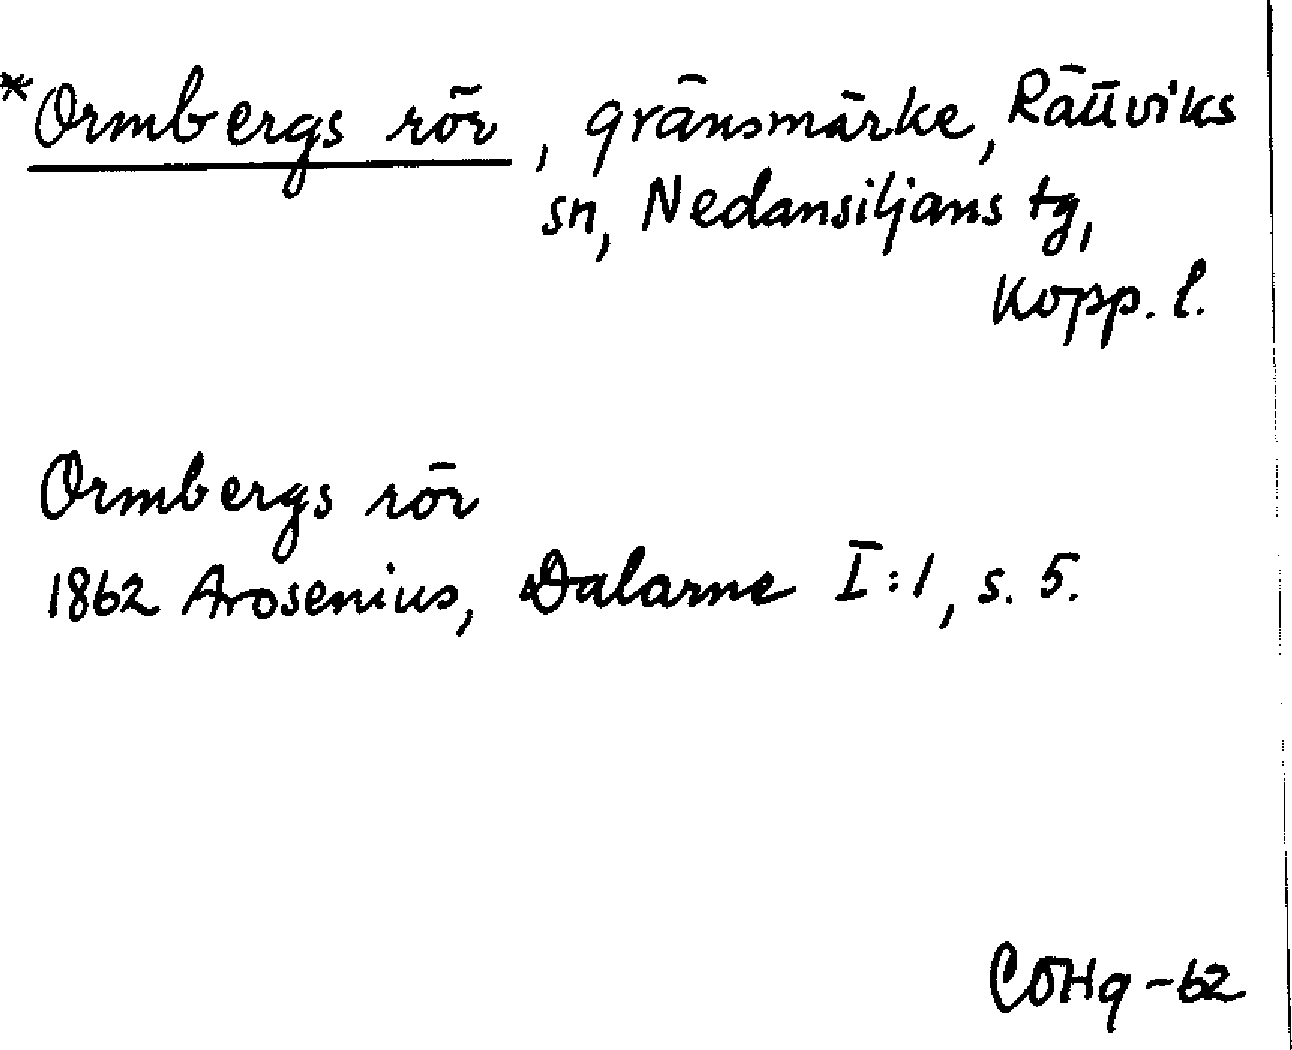 *Ormbergs rör, gränsmärke, Rättviks
sn, Nedansiljans tg,
Kopp. l.
Ormbergs rör
1862 Arosenius, Dalarne I:1, s. 5.
CÖHg -62